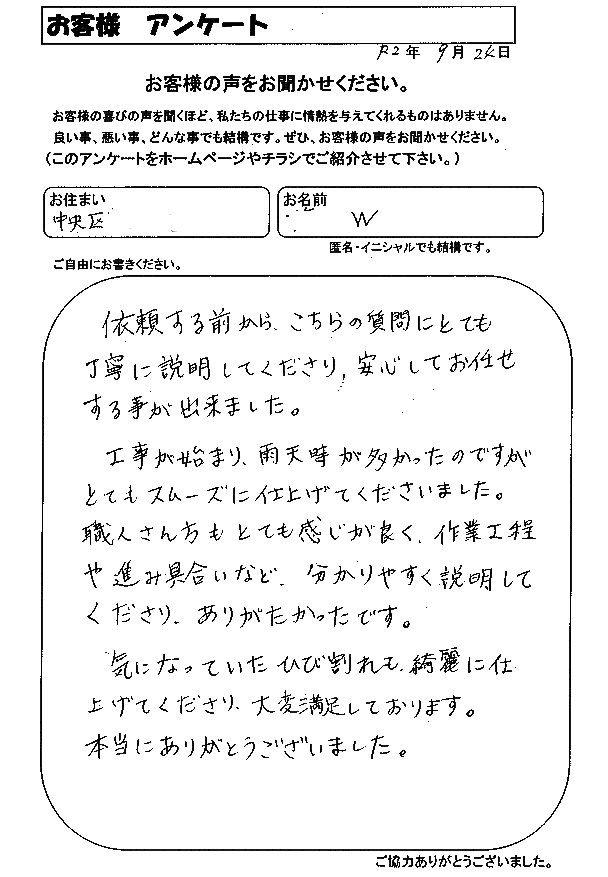 お客様 アンケート
R2年 9月24日
お客様の声をお聞かせください。
お客様の喜びの声を聞くほど、私たちの仕事に情熱を与えてくれるものはありません。
良い事、悪い事、どんな事でも結構です。ぜひ、お客様の声をお聞かせください。
(このアンケートをホームページやチラシでご紹介させて下さい。)
お住まい
中央区
お名前
W
匿名・イニシャルでも結構です。
ご自由にお書きください。
依頼する前から、こちらの質問にとても
丁寧に説明してくださり、安心してお任せ
する事が出来ました。
工事が始まり、雨天時が多かったのですが
とてもスムーズに仕上げてくださいました。
職人さん方もとても感じが良く、作業工程
や進み具合いなど、分かりやすく説明して
くださり、ありがたかったです。
気になっていたひび割れも、綺麗に仕
上げてくださり、大変満足しております。
本当にありがとうございました。
ご協力ありがとうございました。